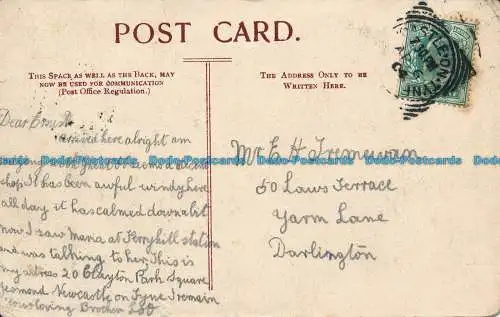 POST CARD.
THIS SPACE AS WELL AS THE BACK, MAY
NOW BE USED FOR COMMUNICATION
(Post Office Regulation.)
THE ADDRESS ONLY TO BE
WRITTEN HERE.
Dear Ernest
arrived here alright am
shop It has been awful windy here
all day it has calmed down abit
now I saw Maria at Ferryhill station
and was talking to her This is
my adress 20 Clayton Park Square
Jesmond Newcastle on Tyne I remain
Your loving Brother
Mr E. H Tremewan
50 Laws Terrace
Yarm Lane
Darlington
Dodo-Postcards Dodo-Postcards Dodo-Postcards Dodo-Postcards Dodo-Postcards